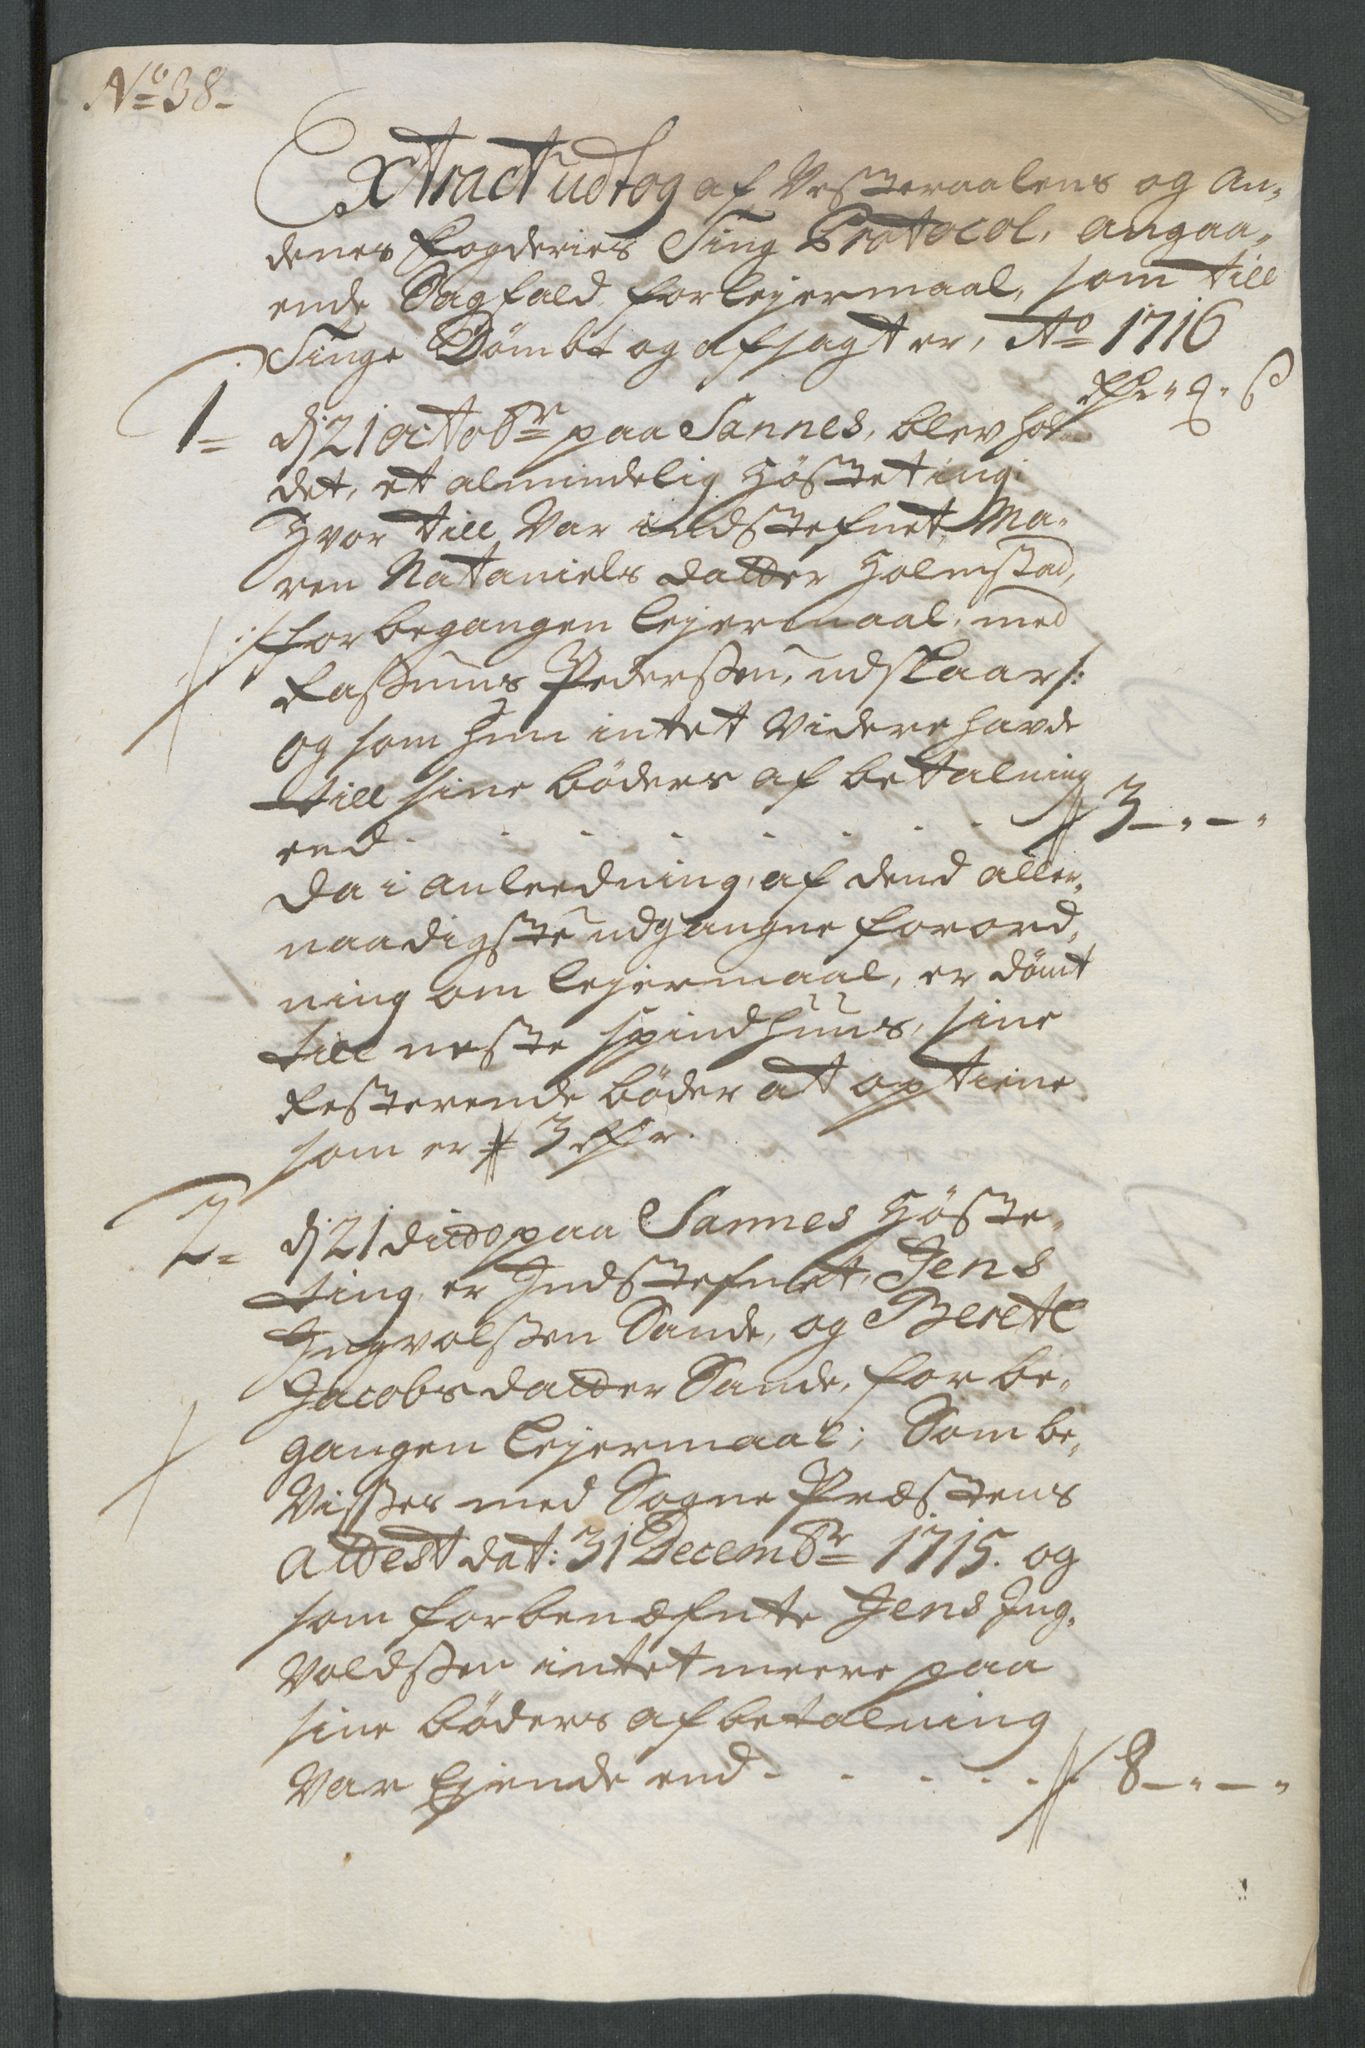 No 38-
Extract udtog af Vesteraalens og An-
denes fogderies Ting Protocol, angaa-
ende Sagfald for lejermaal, som till
Tinge Dømbt og afsagt er, Ao 1716
1= dj 21 octobr paa Sannes, blev hol-
det, et almindelig Høsteting
Hvor till Var indstefnet, Ma-
ren Nataniels datter Holmstad,
/: for begangen lejermaal, med
Rasmus Pedersen, udslaar /:
og som hun intet Videre havde
till sine bøders af betalning
end - - - - - - - 3 - " - "
Da i anleedning, af dend aller-
naadigste udgangne forord-
ning om lejermaal, er dømt
till neste spindhuus, sine
Resterende bøder at optiene
som er 3 rdr.
2= dj 21 dicto paa Sannes Høste-
ting er Indstefnet, Jens
Ingvolssen Sande, og Berete
Jacobsdatter Sande, for be-
gangen lejermaal; Som be-
Visses med Sogne Præstens
attest dat: 31 Decembr 1715. og
som forbenæfnte Jens Ing-
Voldssen intet meere paa
sine bøders afbetalning
Var Ejende end - - - - - 8 - " - "